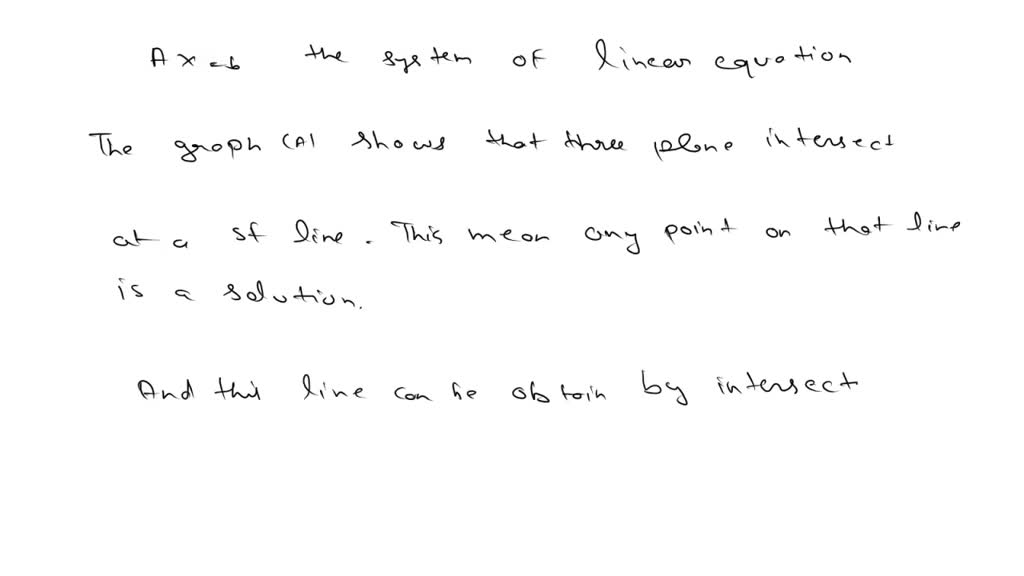 Ax=b the system of linear equation
The graph (A) shows that three plane intersect
at a sf line. This mean any point on that line
is a solution.
And this line can be obtain by intersect